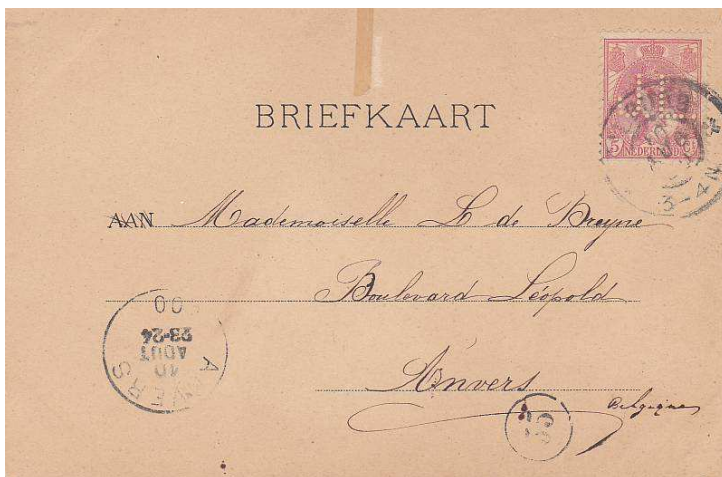 BRIEFKAART
5 NEDERLAND
AAN Mademoiselle L. de Breyne
Boulevard Léopold
Anvers
Belgique
ANVERS
10
AOUT
23-24
00